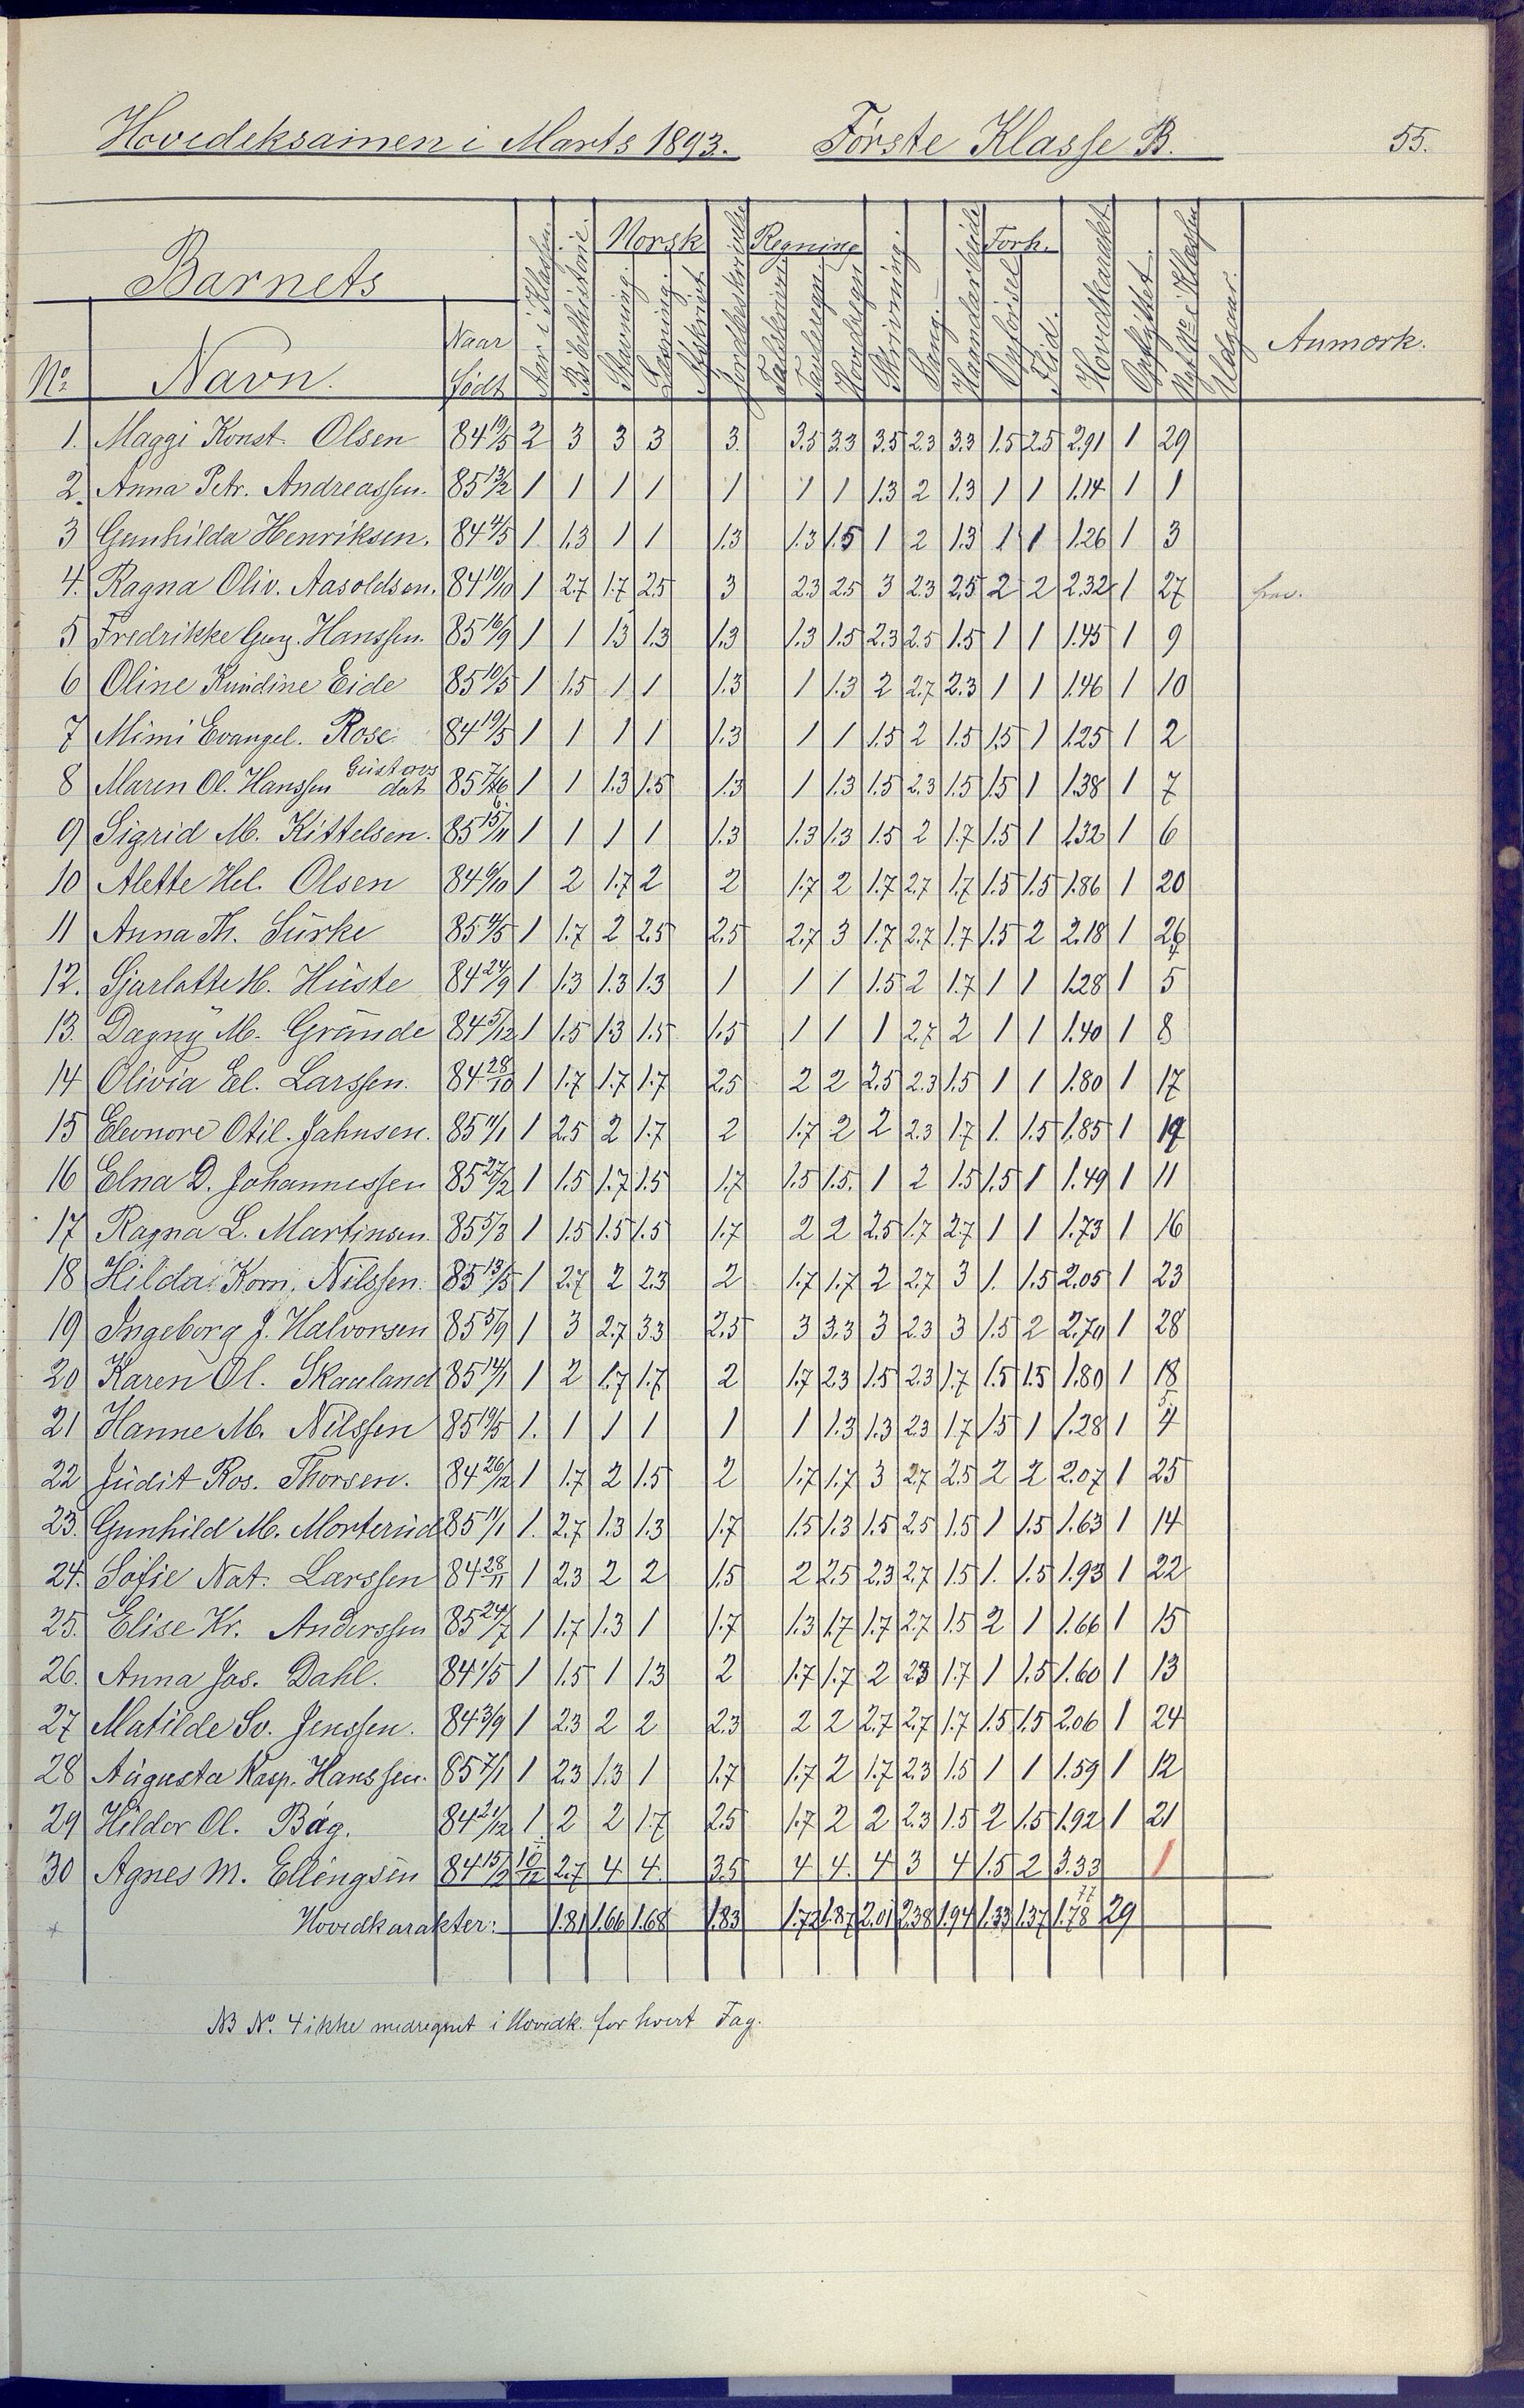 Hovedeksamen i Marts 1893. Første Klasse B. 55.
Barnets
Norsk Regning Forh.
No Navn. Naar Født Aar i Klassen Bibelhistorie. Stavning. Læsning. Afskrivt. Jordbeskrivelse Talskrivn. Tavleregn. Hovedregn. Skrivning. Sang. Haandarbeide Opførsel Flid. Hovedkarakt. Opflyttet. Nyt No i Klassen Udgaar. Anmærk.
1. Maggi Konst. Olsen 84 19/5 2 3 3 3 3. 3.5 3.3 3.5 2.3 3.3 1.5 2.5 2.91 1 29
2. Anna Petr. Andreassen. 85 13/2 1 1 1 1 1 1 1 1.3 2 1.3 1 1 1.14 1 1
3 Gunhilda Henriksen. 84 4/5 1 1.3 1 1 1.3 1.3 1.5 1 2 1.3 1 1 1.26 1 3
4. Ragna Oliv. Aasoldsen. 84 10/10 1 2.7 1.7 2.5 3 2.3 2.5 3 2.3 2.5 2 2 2.32 1 27 frav.
5 Fredrikke Hanssen. 85 16/9 1 1 1.3 1.3 1.3 1.3 1.5 2.3 2.5 1.5 1 1 1.45 1 9
6 Oline Kundine Eide 85 10/5 1 1.5 1 1 1.3 1 1.3 2 2.7 2.3 1 1 1.46 1 10
7 Mimi Evangel. Rose 84 19/5 1 1 1 1 1.3 1 1 1.5 2 1.5 1.5 1 1.25 1 2
8 Maren Ol. Hanssen Gustavs dat 85 7/6 1 1 1.3 1.5 1.3 1 1.3 1.5 2.3 1.5 1.5 1 1.38 1 7
9 Sigrid M. Kittelsen. 85 15/11 1 1 1 1 1.3 1.3 1.3 1.5 2 1.7 1.5 1 1.32 1 6
10 Alette Hel. Olsen 84 6/10 1 2 1.7 2 2 1.7 2 1.7 2.7 1.7 1.5 1.5 1.86 1 20
11 Anna Th. Surke 85 4/5 1 1.7 2 2.5 2.5 2.7 3 1.7 2.7 1.7 1.5 2 2.18 1 26
12. Sjarlotte H. Huste 84 24/9 1 1.3 1.3 1.3 1 1 1 1.5 2 1.7 1 1 1.28 1 5
13. Dagny M. Grande 84 5/12 1 1.5 1.3 1.5 1.5 1 1 1 2.7 2 1 1 1.40 1 8
14 Olivia El. Larssen. 84 28/10 1 1.7 1.7 1.7 2.5 2 2 2.5 2.3 1.5 1 1 1.80 1 17
15 Eleonore Otil. Jahnsen. 85 11/1 1 2.5 2 1.7 2 1.7 2 2 2.3 1.7 1. 1.5 1.85 1 19
16 Elna D. Johannessen 85 27/2 1 1.5 1.7 1.5 1.7 1.5 1.5. 1 2 1.5 1.5 1 1.49 1 11
17 Ragna L. Martinsen. 85 5/3 1 1.5 1.5 1.5 1.7 2 2 2.5 1.7 2.7 1 1 1.73 1 16
18 Hilda Korn. Nilssen. 85 13/5 1 2.7 2 2.3 2 1.7 1.7 2 2.7 3 1. 1.5 2.05 1 23
19 Ingeborg J. Halvorsen 85 5/9 1 3 2.7 3.3 2.5 3 3.3 3 2.3 3 1.5 2 2.70 1 28
20 Karen Ol. Skauland 85 14/1 1 2 1.7 1.7 2 1.7 2.3 1.5 2.3 1.7 1.5 1.5 1.80 1 18
21 Hanne M. Nilssen 85 19/5 1. 1 1 1 1 1 1.3 1.3 2.3 1.7 1.5 1 1.28 1 4
22 Judit Ros. Thorsen. 84 26/12 1 1.7 2 1.5 2 1.7 1.7 3 2.7 2.5 2 2 2.07 1 25
23. Gunhild M. Morterud 85 11/1 1. 2.7 1.3 1.3 1.7 1.5 1.3 1.5 2.5 1.5 1 1.5 1.63 1 14
24. Sofie Nat. Larssen 84 28/11 1 2.3 2 2 1.5 2 2.5 2.3 2.7 1.5 1. 1.5 1.93 1 22
25. Elise Kr. Anderssen 85 24/7 1 1.7 1.3 1 1.7 1.3 1.7 1.7 2.7 1.5 2 1 1.66 1 15
26. Anna Jos. Dahl. 84 1/5 1 1.5 1 1.3 2 1.7 1.7 2 2.3 1.7 1 1.5 1.60 1 13
27 Matilde Sv. Jenssen. 84 3/9 1 2.3 2 2 2.3 2 2 2.7 2.7 1.7 1.5 1.5 2.06 1 24
28 Augusta Kasp. Hanssen. 85 7/1 1 2.3 1.3 1 1.7 1.7 2 1.7 2.3 1.5 1 1 1.59 1 12
29 Hildor Ol. Bág. 84 21/12 1 2 2 1.7 2.5 1.7 2 2 2.3 1.5 2 1.5 1.92 1 21
30 Agnes M. Ellingsen 84 15/2 10/12 2.7 4 4. 3.5 4 4. 4 3 4 1.5 2 3.33 1
Hovedkarakter: 1.81 1.66 1.68 1.83 1.72 1.87 2.01 2.38 1.94 1.33 1.37 1.78 29
NB No. 4 ikke medregnet i Hovedk. for hvert Fag.